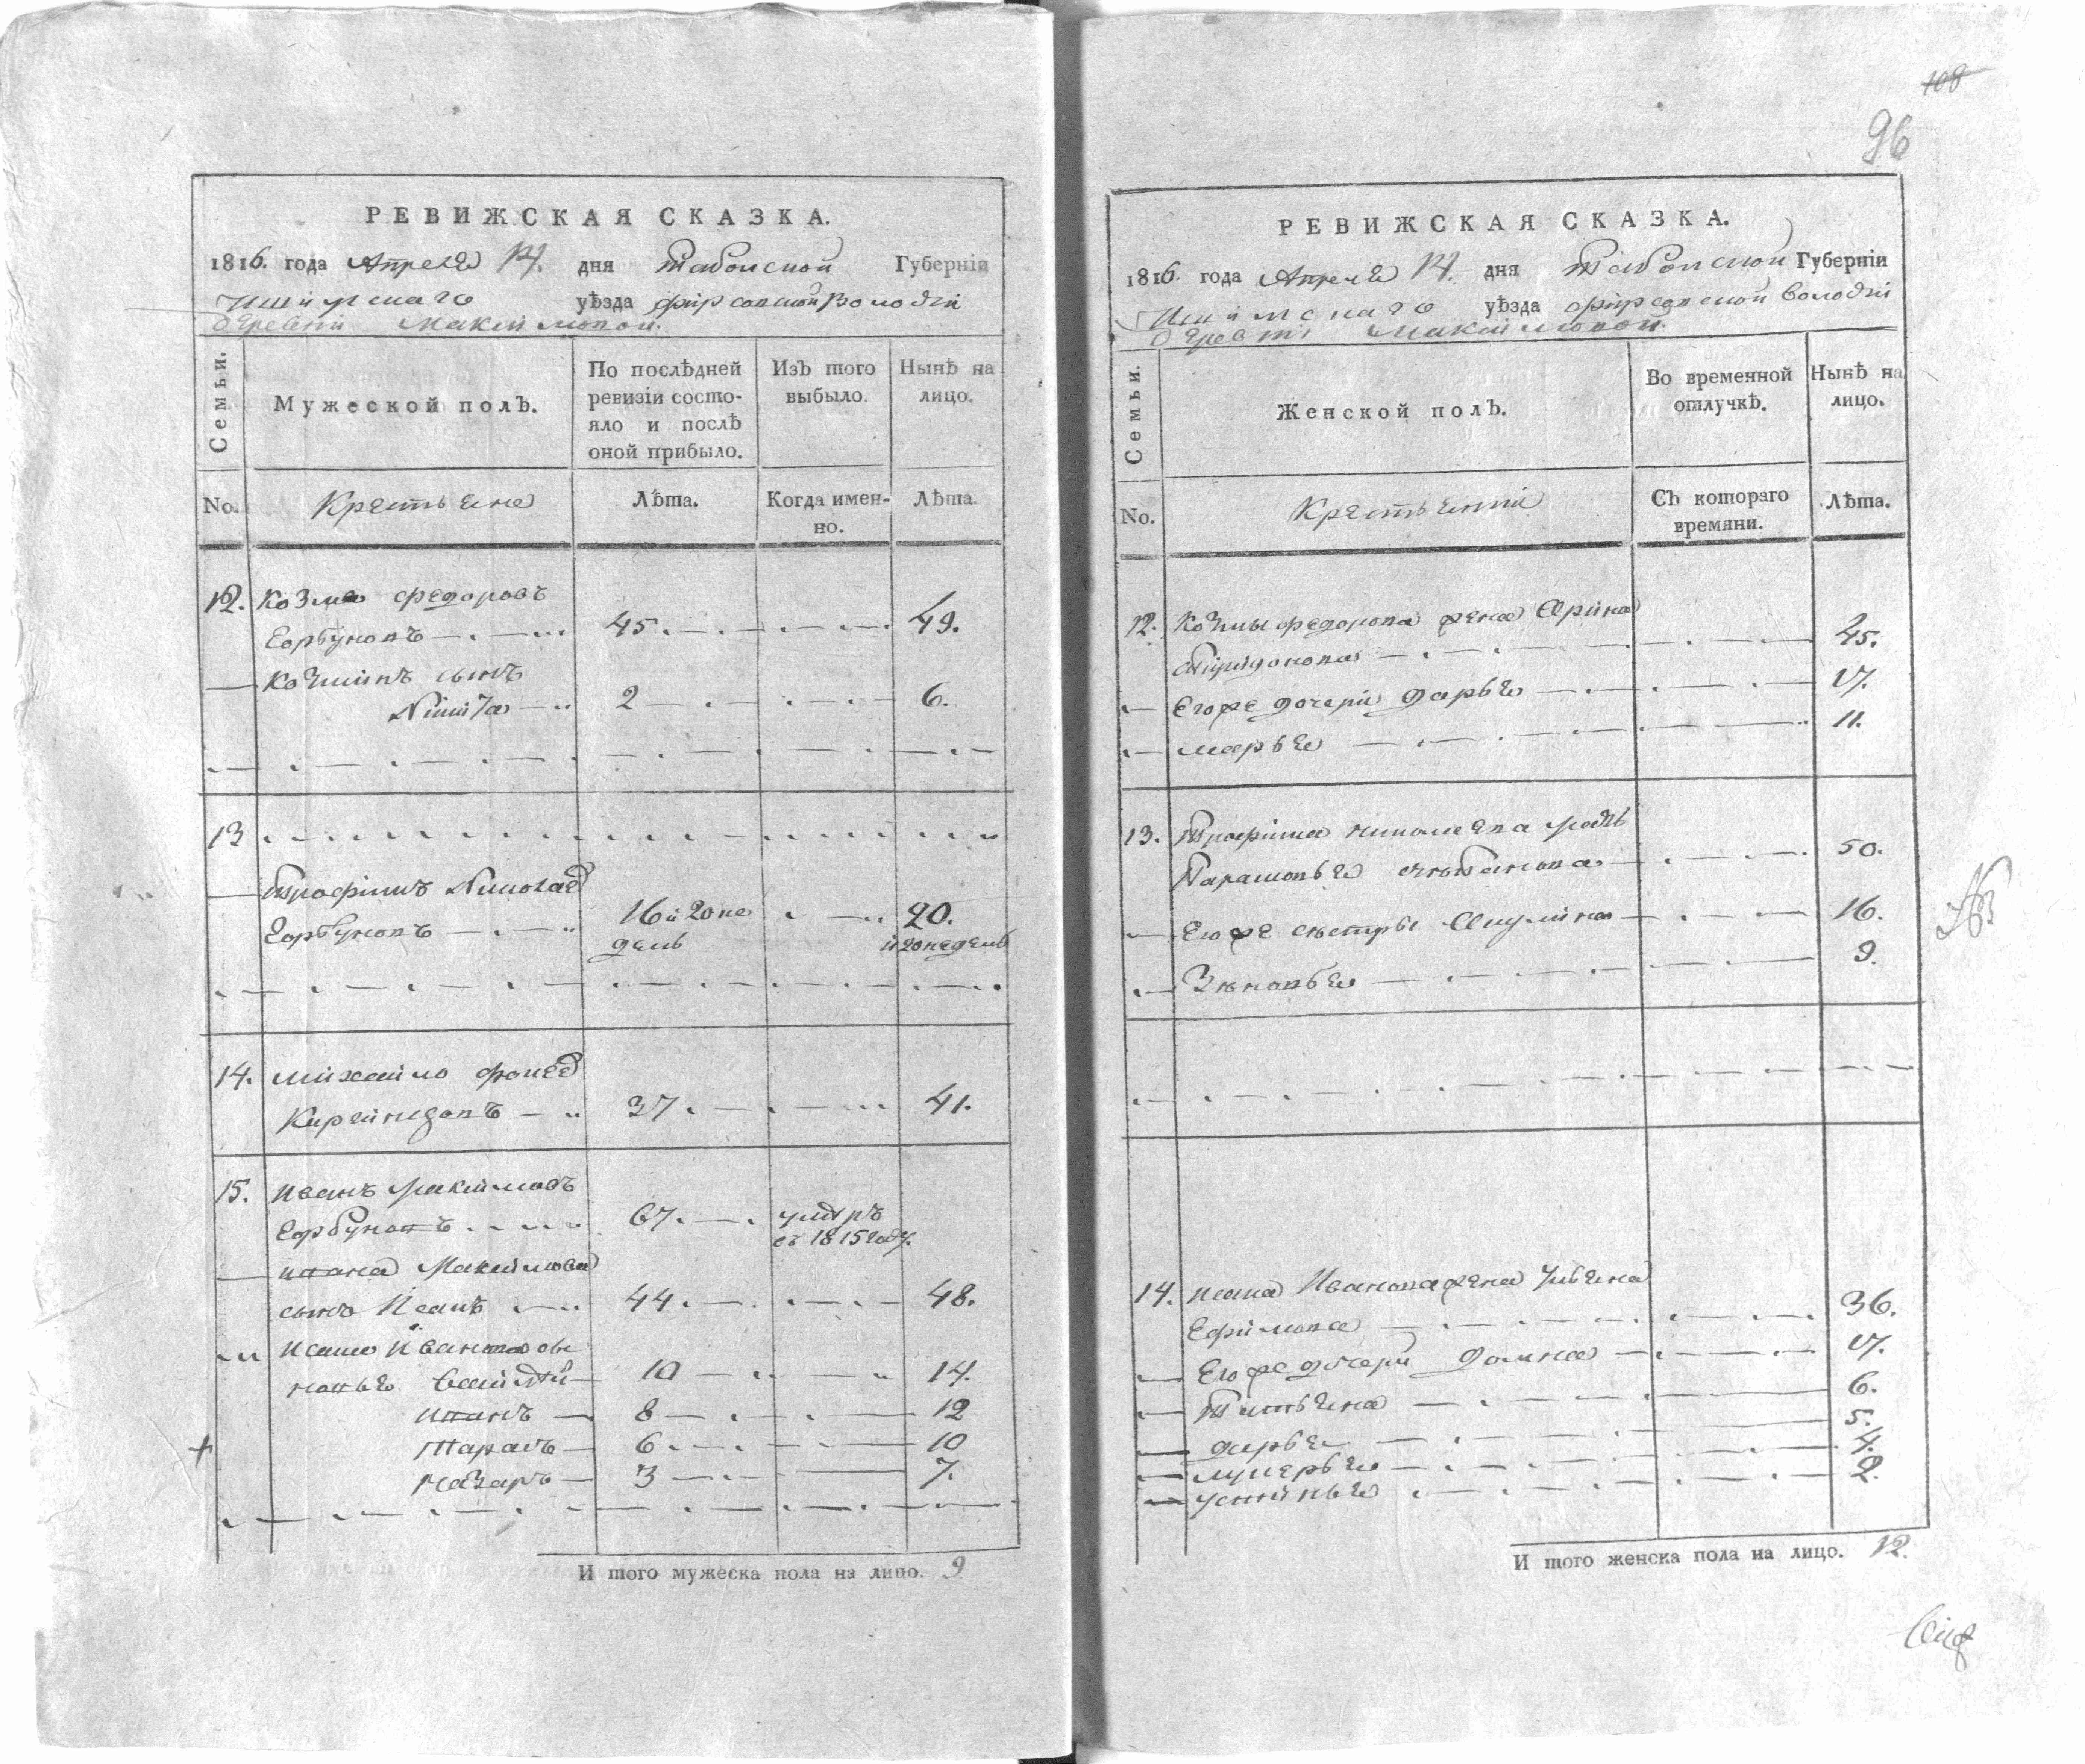 РЕВИЖСКАЯ СКАЗКА.
1816. года Апреля дня Тобольской Губерніи
Ишимскаго уѣзда фирсовской Волости
деревни Максимовой.
Семьи.
Мужеской полъ.
По послѣдней ревизіи состо-
яло и послѣ
оной прибыло.
Изъ того
выбыло.
Нынѣ на
лицо.
No.
Крестьяне
Лѣта.
Когда имен-
но.
Лѣта.
12. Козма федоровъ
Горбуновъ 45. 49.
Козминъ сынъ
Никита 2 6.
13
Трофимъ Николаев
Горбуновъ 16 и 20 не 20.
дель и 20 недель
14. михаило фокеев
37. 41.
15. иванъ максимовъ
Горбуновъ 67. умеръ
въ 1815 году.
ивана Максимова
сынъ Исакъ 44. 48.
исака Ивановы
10 14.
иванъ 8 12
тарасъ 6 10
назаръ 3 7.
И того мужеска пола на лицо. 9
108
96
РЕВИЖСКАЯ СКАЗКА.
1816. года Апреля дня Тобольской Губерніи
Ишимскаго уѣзда фирсовской волости
деревни Максимовой.
Семьи.
Женской полъ.
Во временной
отлучкѣ.
Нынѣ на
лицо.
No.
Съ котораго
времяни.
Лѣта.
12. Козмы федорова жена Арина
спиридонова 45.
Егоже дочери Дарья 17.
марья 11.
13. Трофима николаева мать
Парасковья степанова 50.
Егоже сестры Акулина 16.
Зеновья 9.
14. исака Иванова жена Ульяна
Ефимова 36.
Егоже дочери Домна 17.
Татьяна 6.
дарья 5.
лукерья 4.
устинья 2.
И того женска пола на лицо. 12.